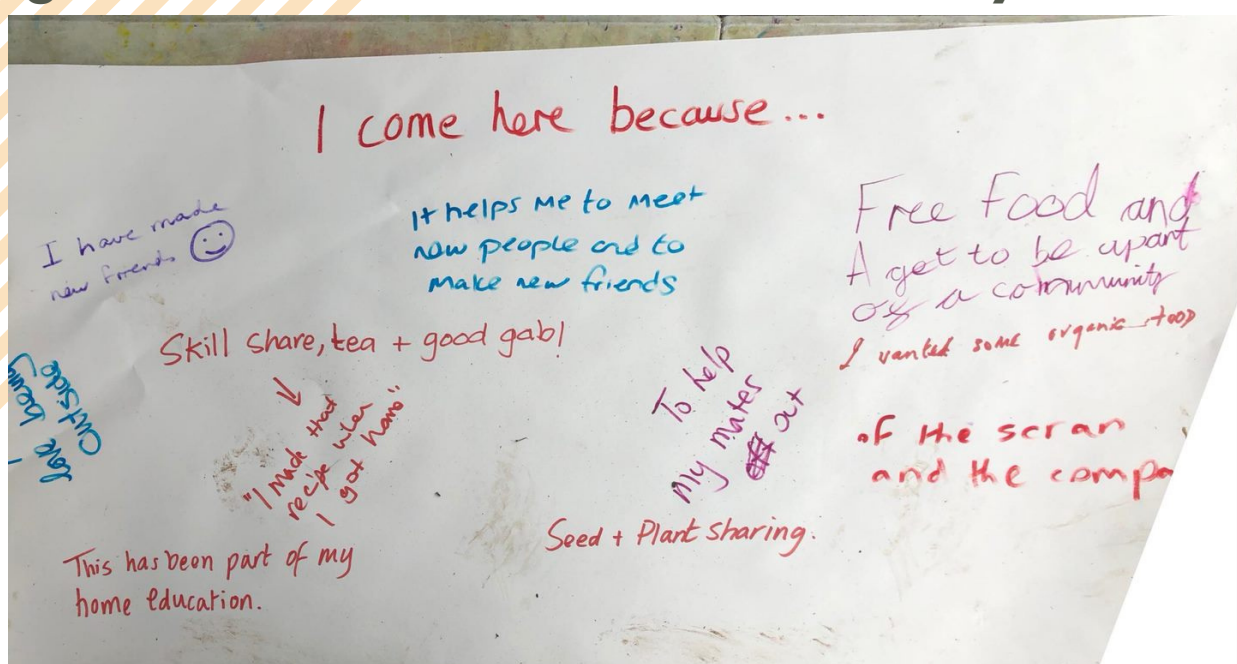 I come here because...
I have made
new friends
It helps me to meet
new people and to
make new friends
Free Food and
A get to be apart
of a community
I wanted some organic food
Skill share, tea + good gab!
"I made that
recipe when
I got home"
love being
outside
To help
my mates
out
of the scran
and the compa
Seed + Plant sharing.
This has been part of my
home education.